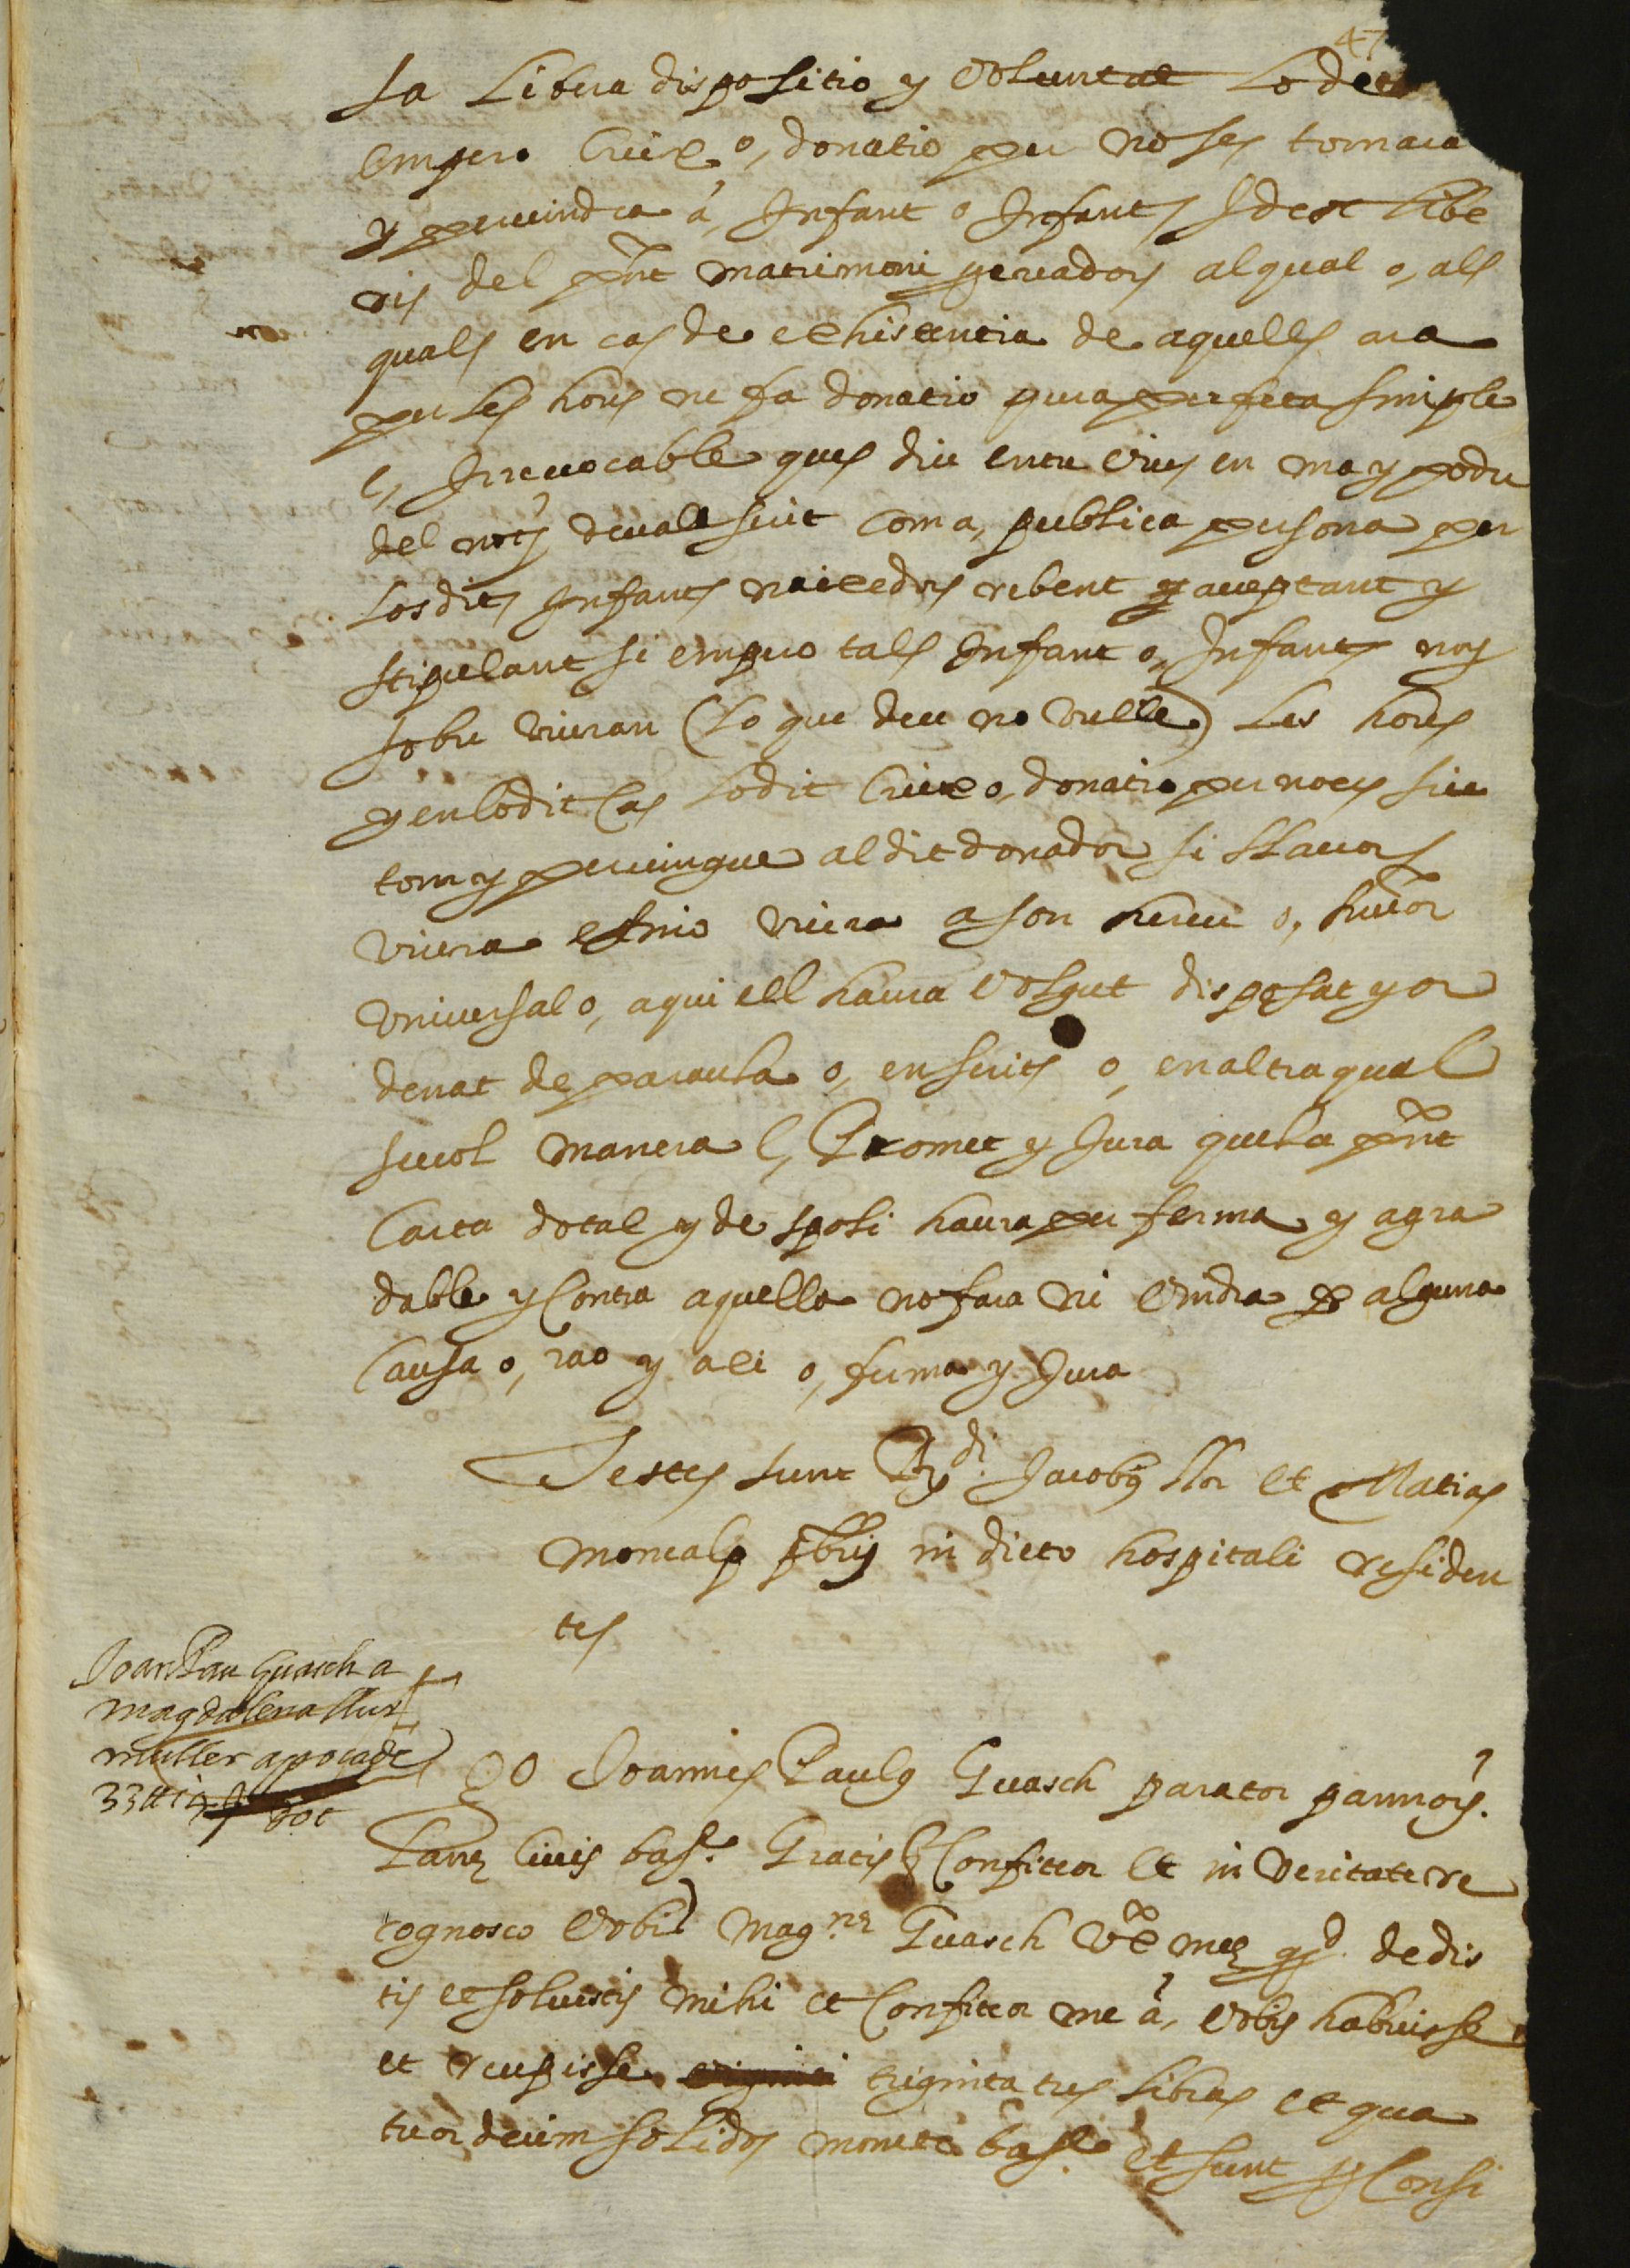 47
sa libera dispositio y voluntat lo dit
empero Creix o, donatio per noses tornara
y pervindra á, Infant o Infants Idest libe
ris del pnt matrimoni procreadors al qual o, als
quals en cas de exhistentia de aquells ara
per les hores ne fa donatio pura perfeta simple
e, Irrevocable ques diu entre vius en ma y poder
del noty devall scrit com a, publica persona per
los dits Infants naixedors rebent y acceptant y
stipulant si empero tals Infant o, Infants noy
sobre viuran (lo que deu no vulle) les hores
y en lo dit Cas lo dit Creix o, donatio per noces sie
torn y pervingue al dit donador si llavors
viura e sino viura a son hereu o, succor
vniversal o, a qui ell haura volgut disposat y or
denat de paraula o, en scrits o, en altra qual
sevol manera e, Promet y Jura que la pnt
Carta dotal y de sposi haura per ferma y agra
dable y Contra aquella no fara ni vindra per alguna
Causa o, rao y axi o, ferma y Jura
Testes sunt Rdi. Jacobus llor et Matias
moncalp pbri in dicto hospitali residen
tes
Joan Pau Guasch a
magdalena sus
muller apoca de
33 ll 14 s dot
Ego Joannes Paulus Guasch parator pannoru.
Lane Civis bar. Gratis Confiteor et in veritate re
cognosco vobis Magne Guasch vxe mee qd. dedis
tis et solvistis mihi et Confiteor me á, vobis habuisse
et recepisse viginti triginta tres libras et qua
tuor decim solidos monete bar. et sunt p Consi